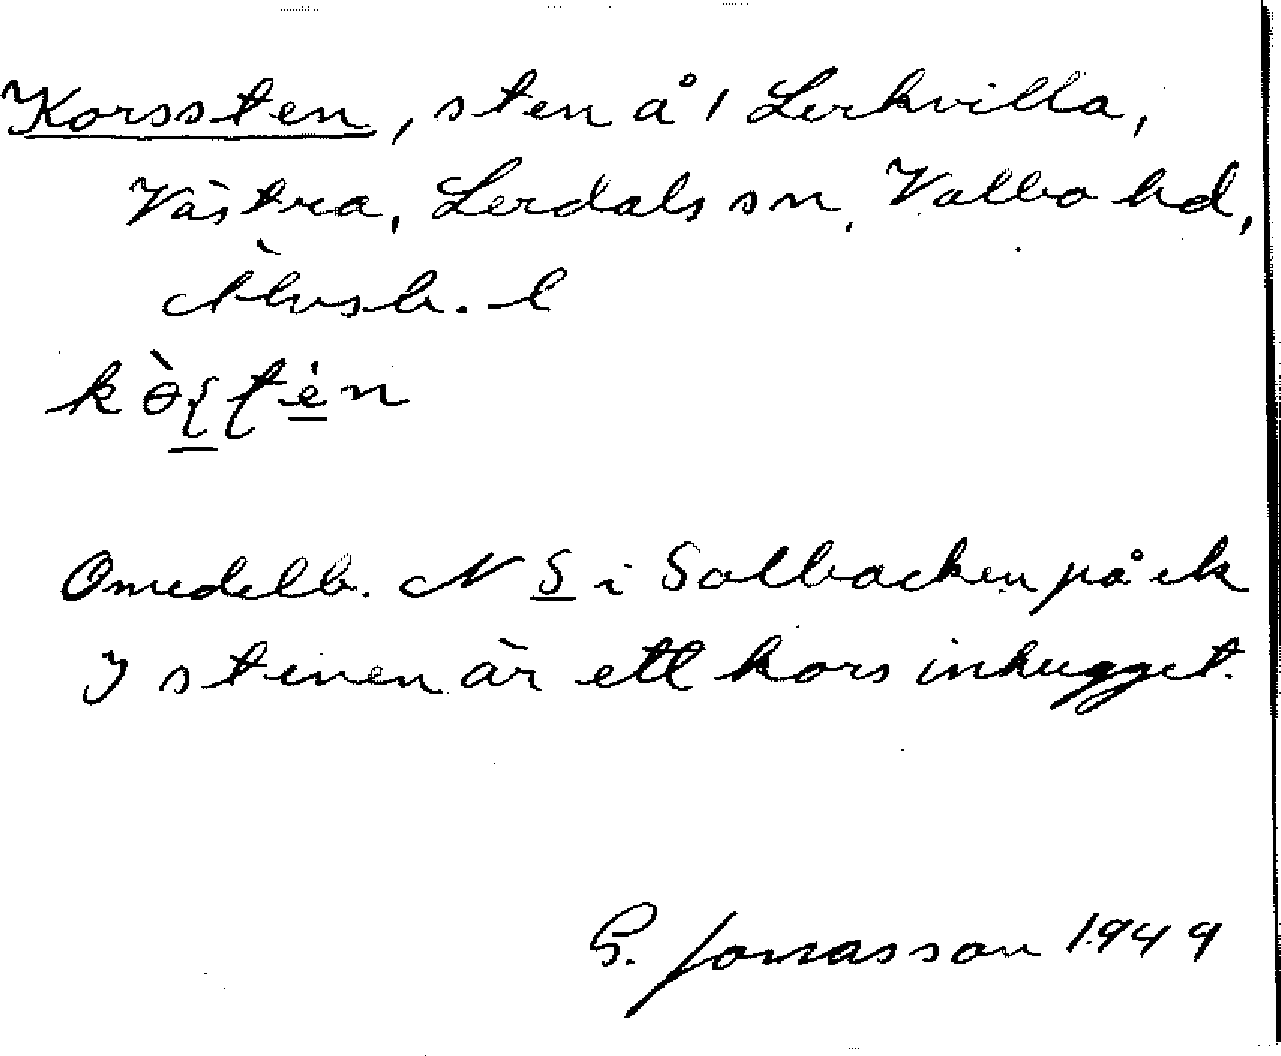 Korssten, sten å 1 Lerkvilla,
Västra, Lerdals sn, Valbo hd,
Älvsb. l
Omedelb. N S i Solbacken på ek
I stenen är ett kors inhugget.
G. Jonasson 1949